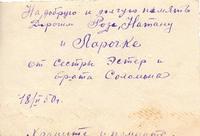 На добрую и долгую память
Дорогим Розе, Натану
и Ларочке
от Сестры Эстер и
брата Соломона
18/II 50 г.
Храните и помните